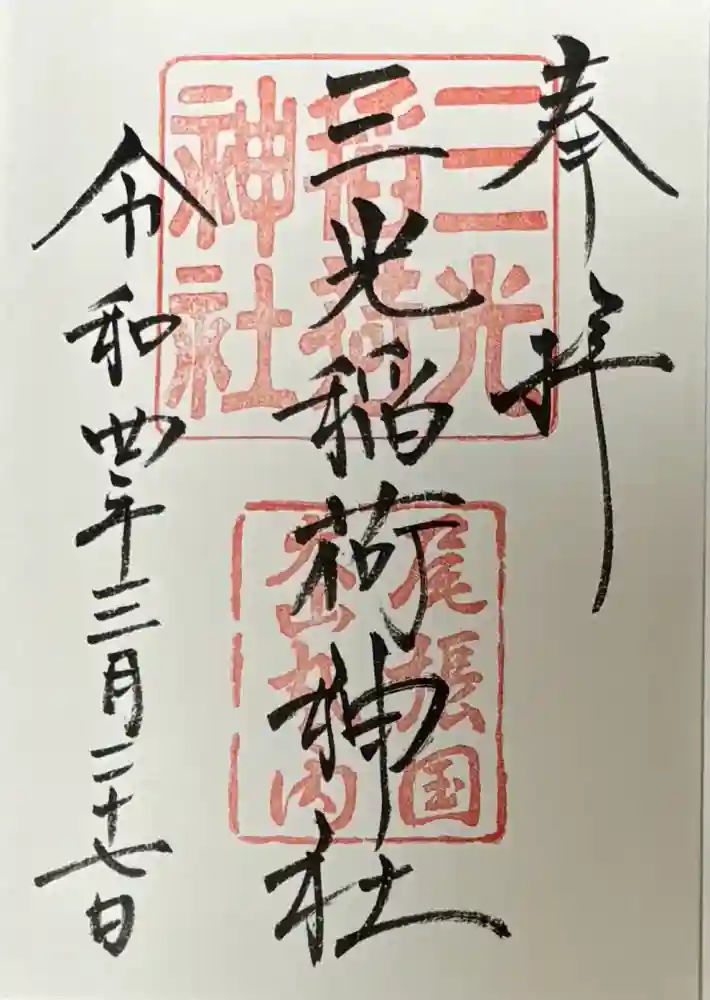 奉拝
三光稲荷神社
令和四年三月二十七日
三光
稲荷
神社
尾張国
犬山 内